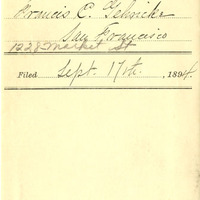 Francis C. Gehricke
San Francisco
1228 Market St
Filed Sept. 17th. , 1894.